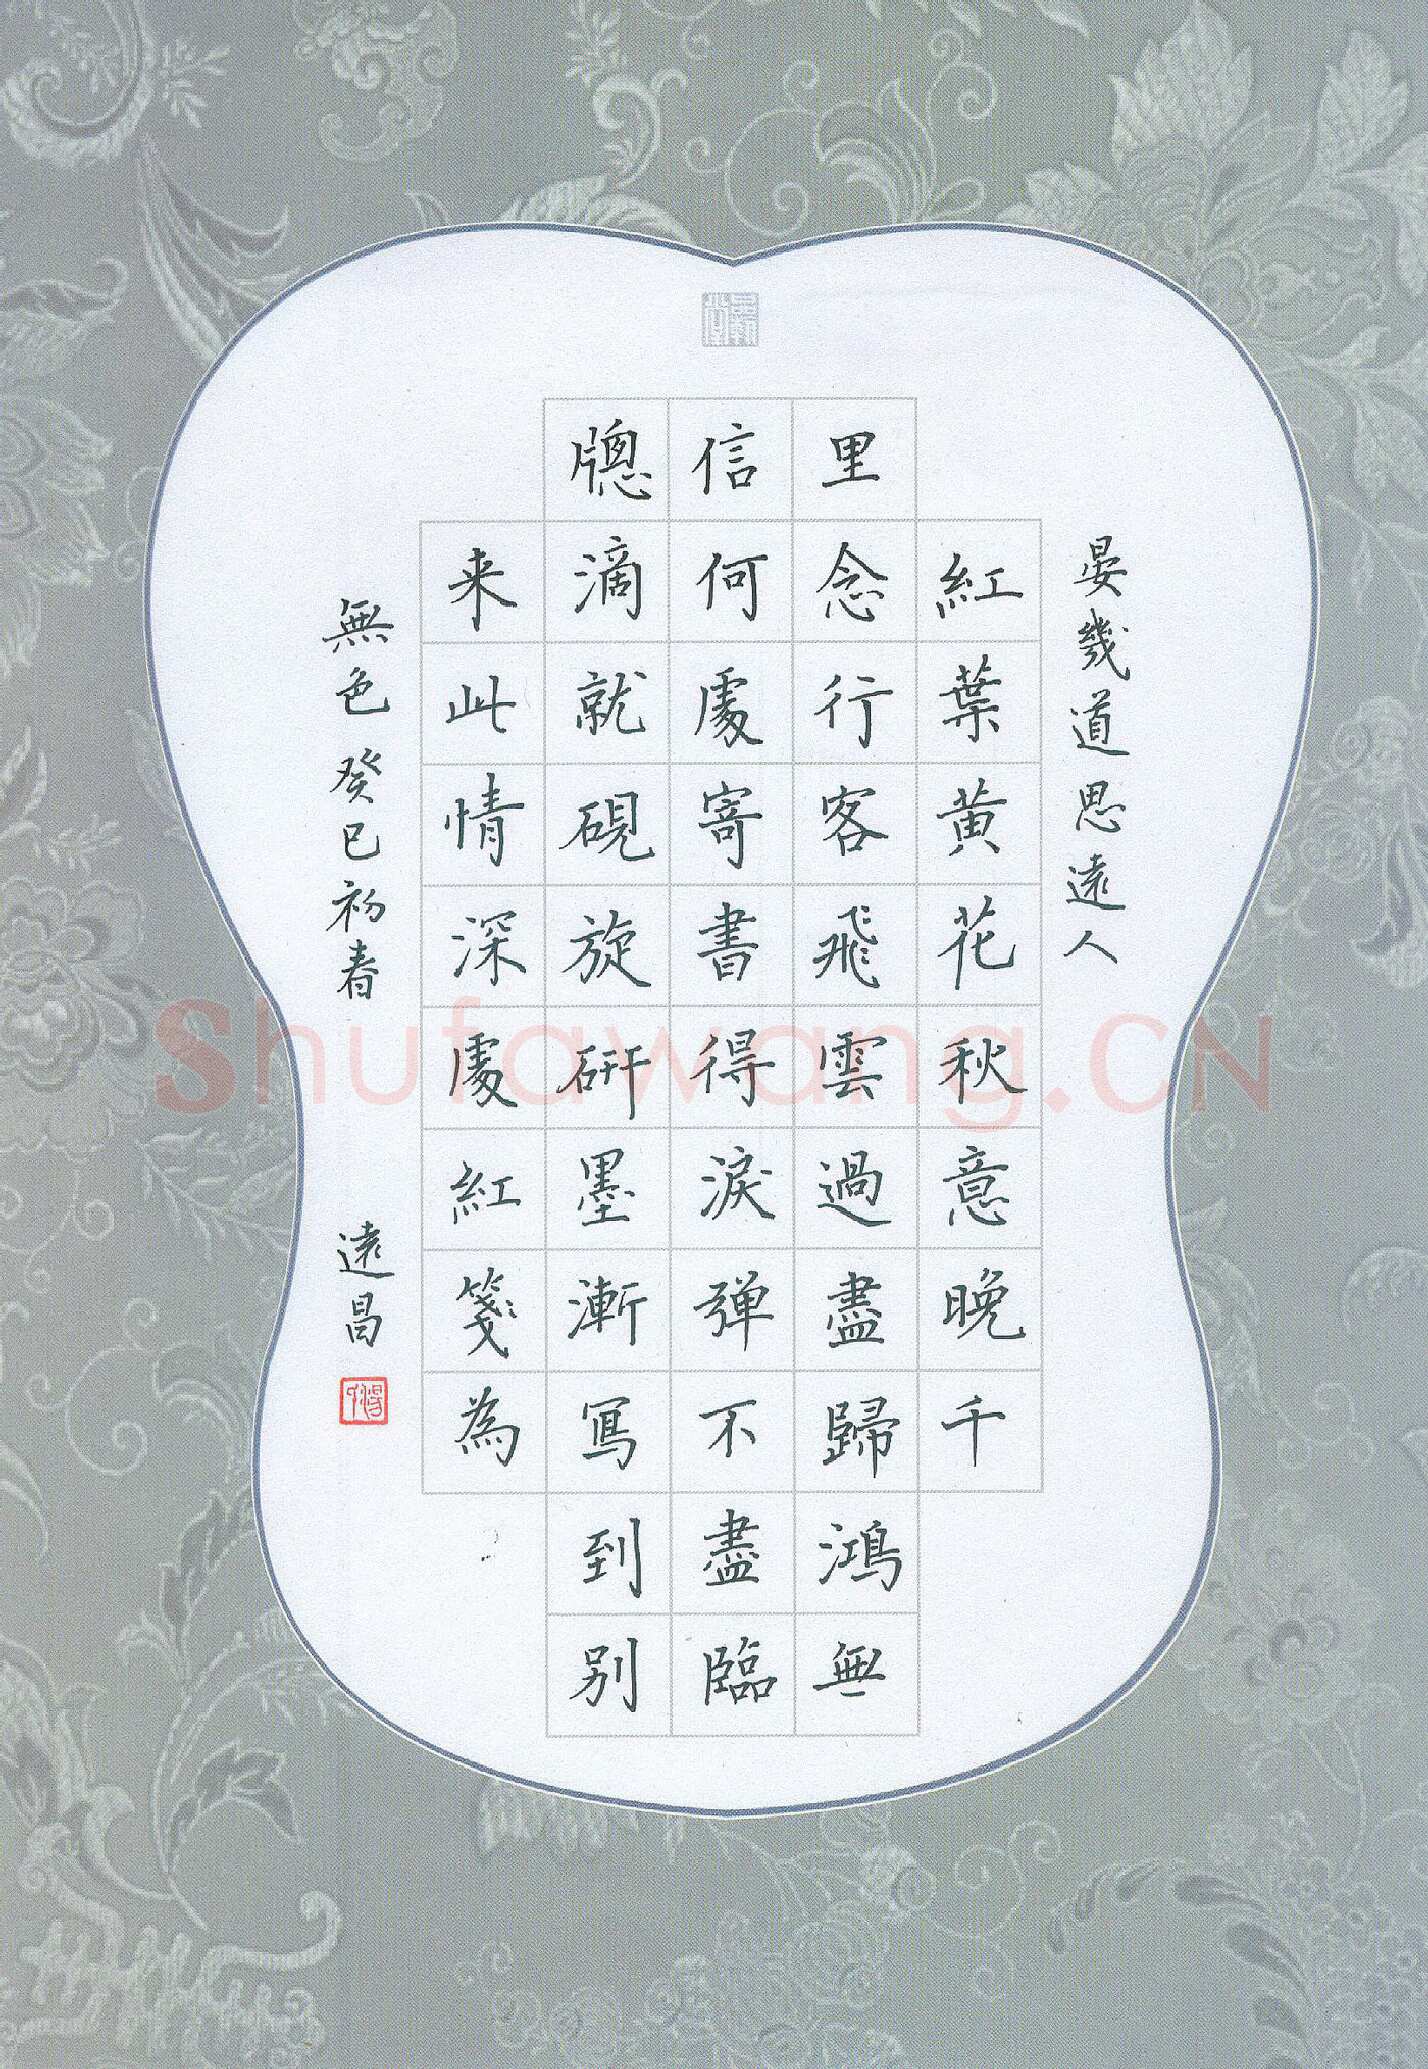 晏幾道思遠人
紅葉黃花秋意晚千
里念行客飛雲過盡歸鴻無
信何處寄書得淚彈不盡臨
牕滴就硯旋研墨漸寫到別
来此情深處紅箋為
無色 癸巳初春 遠昌
Shufawang.CN